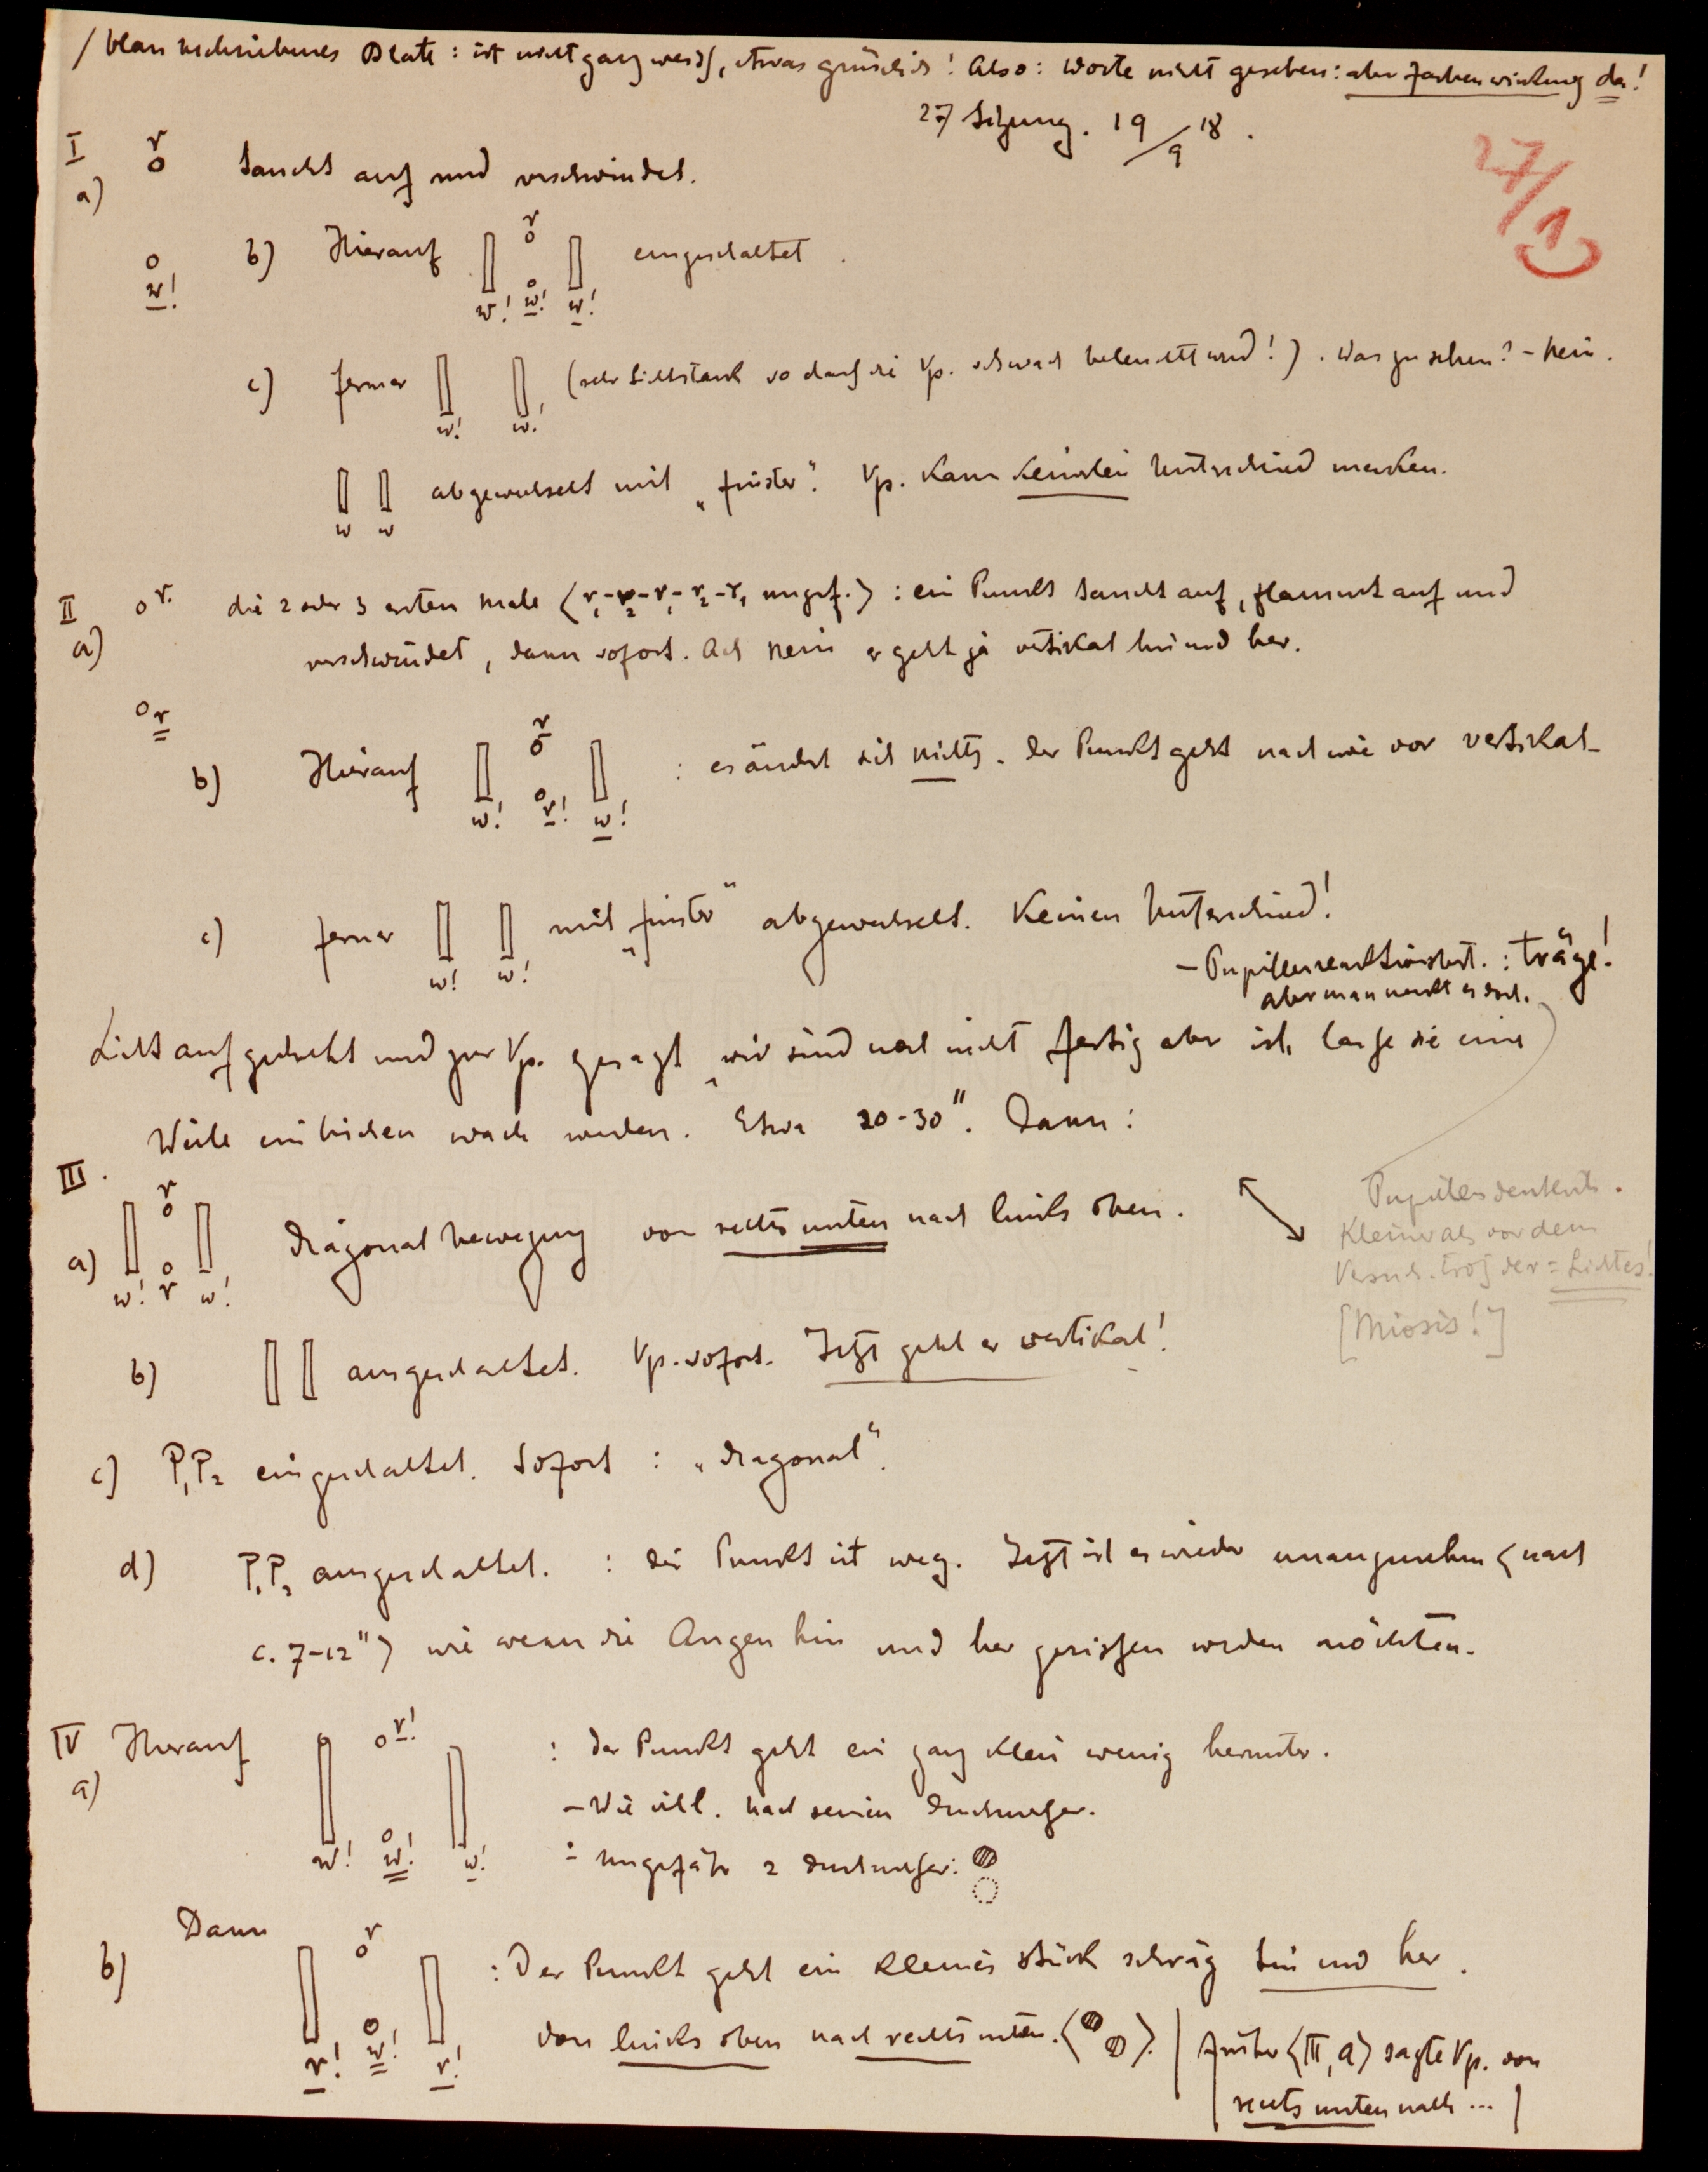 / blau beschriebenes Blatt : ist nicht ganz weiss, etwas grünlich! Also: Worte nicht gesehen: aber Farbenwirkung da!
27 Sitzung. 19/9 18.
27/1
I r
a) o taucht auf und verschwindet.
b) Hierauf r o eingeschaltet.
o w!
w! w! w!
c) ferner (sehr lichtstark so dass die Vp. schwach beleuchtet wird!). Was zu sehen? – Nein.
w! w!
abgewechselt mit „finster“. Vp. kann keinerlei Unterschied merken.
w w
II o r. die 2 oder 3 ersten Male (r₁-r₂-r₁-r₂-r₁ ungef.) : ein Punkt taucht auf, flammt auf und
a) verschwindet, dann sofort. Ach nein er geht ja vertikal hin und her.
o r
b) Hierauf r o : es ändert sich nichts. Der Punkt geht nach wie vor vertikal
w! r! w!
c) ferner mit „finster“ abgewechselt. Keinen Unterschied!
w! w!
– Pupillenreaktion : träge!
aber man merkt es doch.
Licht aufgedreht und zur Vp. gesagt „wir sind noch nicht fertig aber ich lasse sie eine
Weile ein bischen wach werden. Etwa 20-30". Dann :
III.
a) r o Diagonalbewegung von rechts unten nach links oben.
w! r w!
Kleiner als vor dem
Versuch. trotz der = Lichtes!
[Miosis!]
b) ausgeschaltet. Vp. sofort. Jetzt geht er vertikal!
c) P₁P₂ eingeschaltet. Sofort : „diagonal“.
d) P₁P₂ ausgeschaltet. : der Punkt ist weg. Jetzt ist es wieder unangenehm (nach
c. 7-12") wie wenn die Augen hin und her gerissen werden möchten.
IV Hierauf o r! : der Punkt geht ein ganz klein wenig herunter.
a) – Wie viel. Nach seinem Durchmesser.
w! w! w! – Ungefähr 2 Durchmesser:
Dann
b) r o : Der Punkt geht ein kleines Stück schräg hin und her.
r! w! r! von links oben nach rechts unten. ( ). | früher (III, a) sagte Vp. von
| rechts unten nach ... |